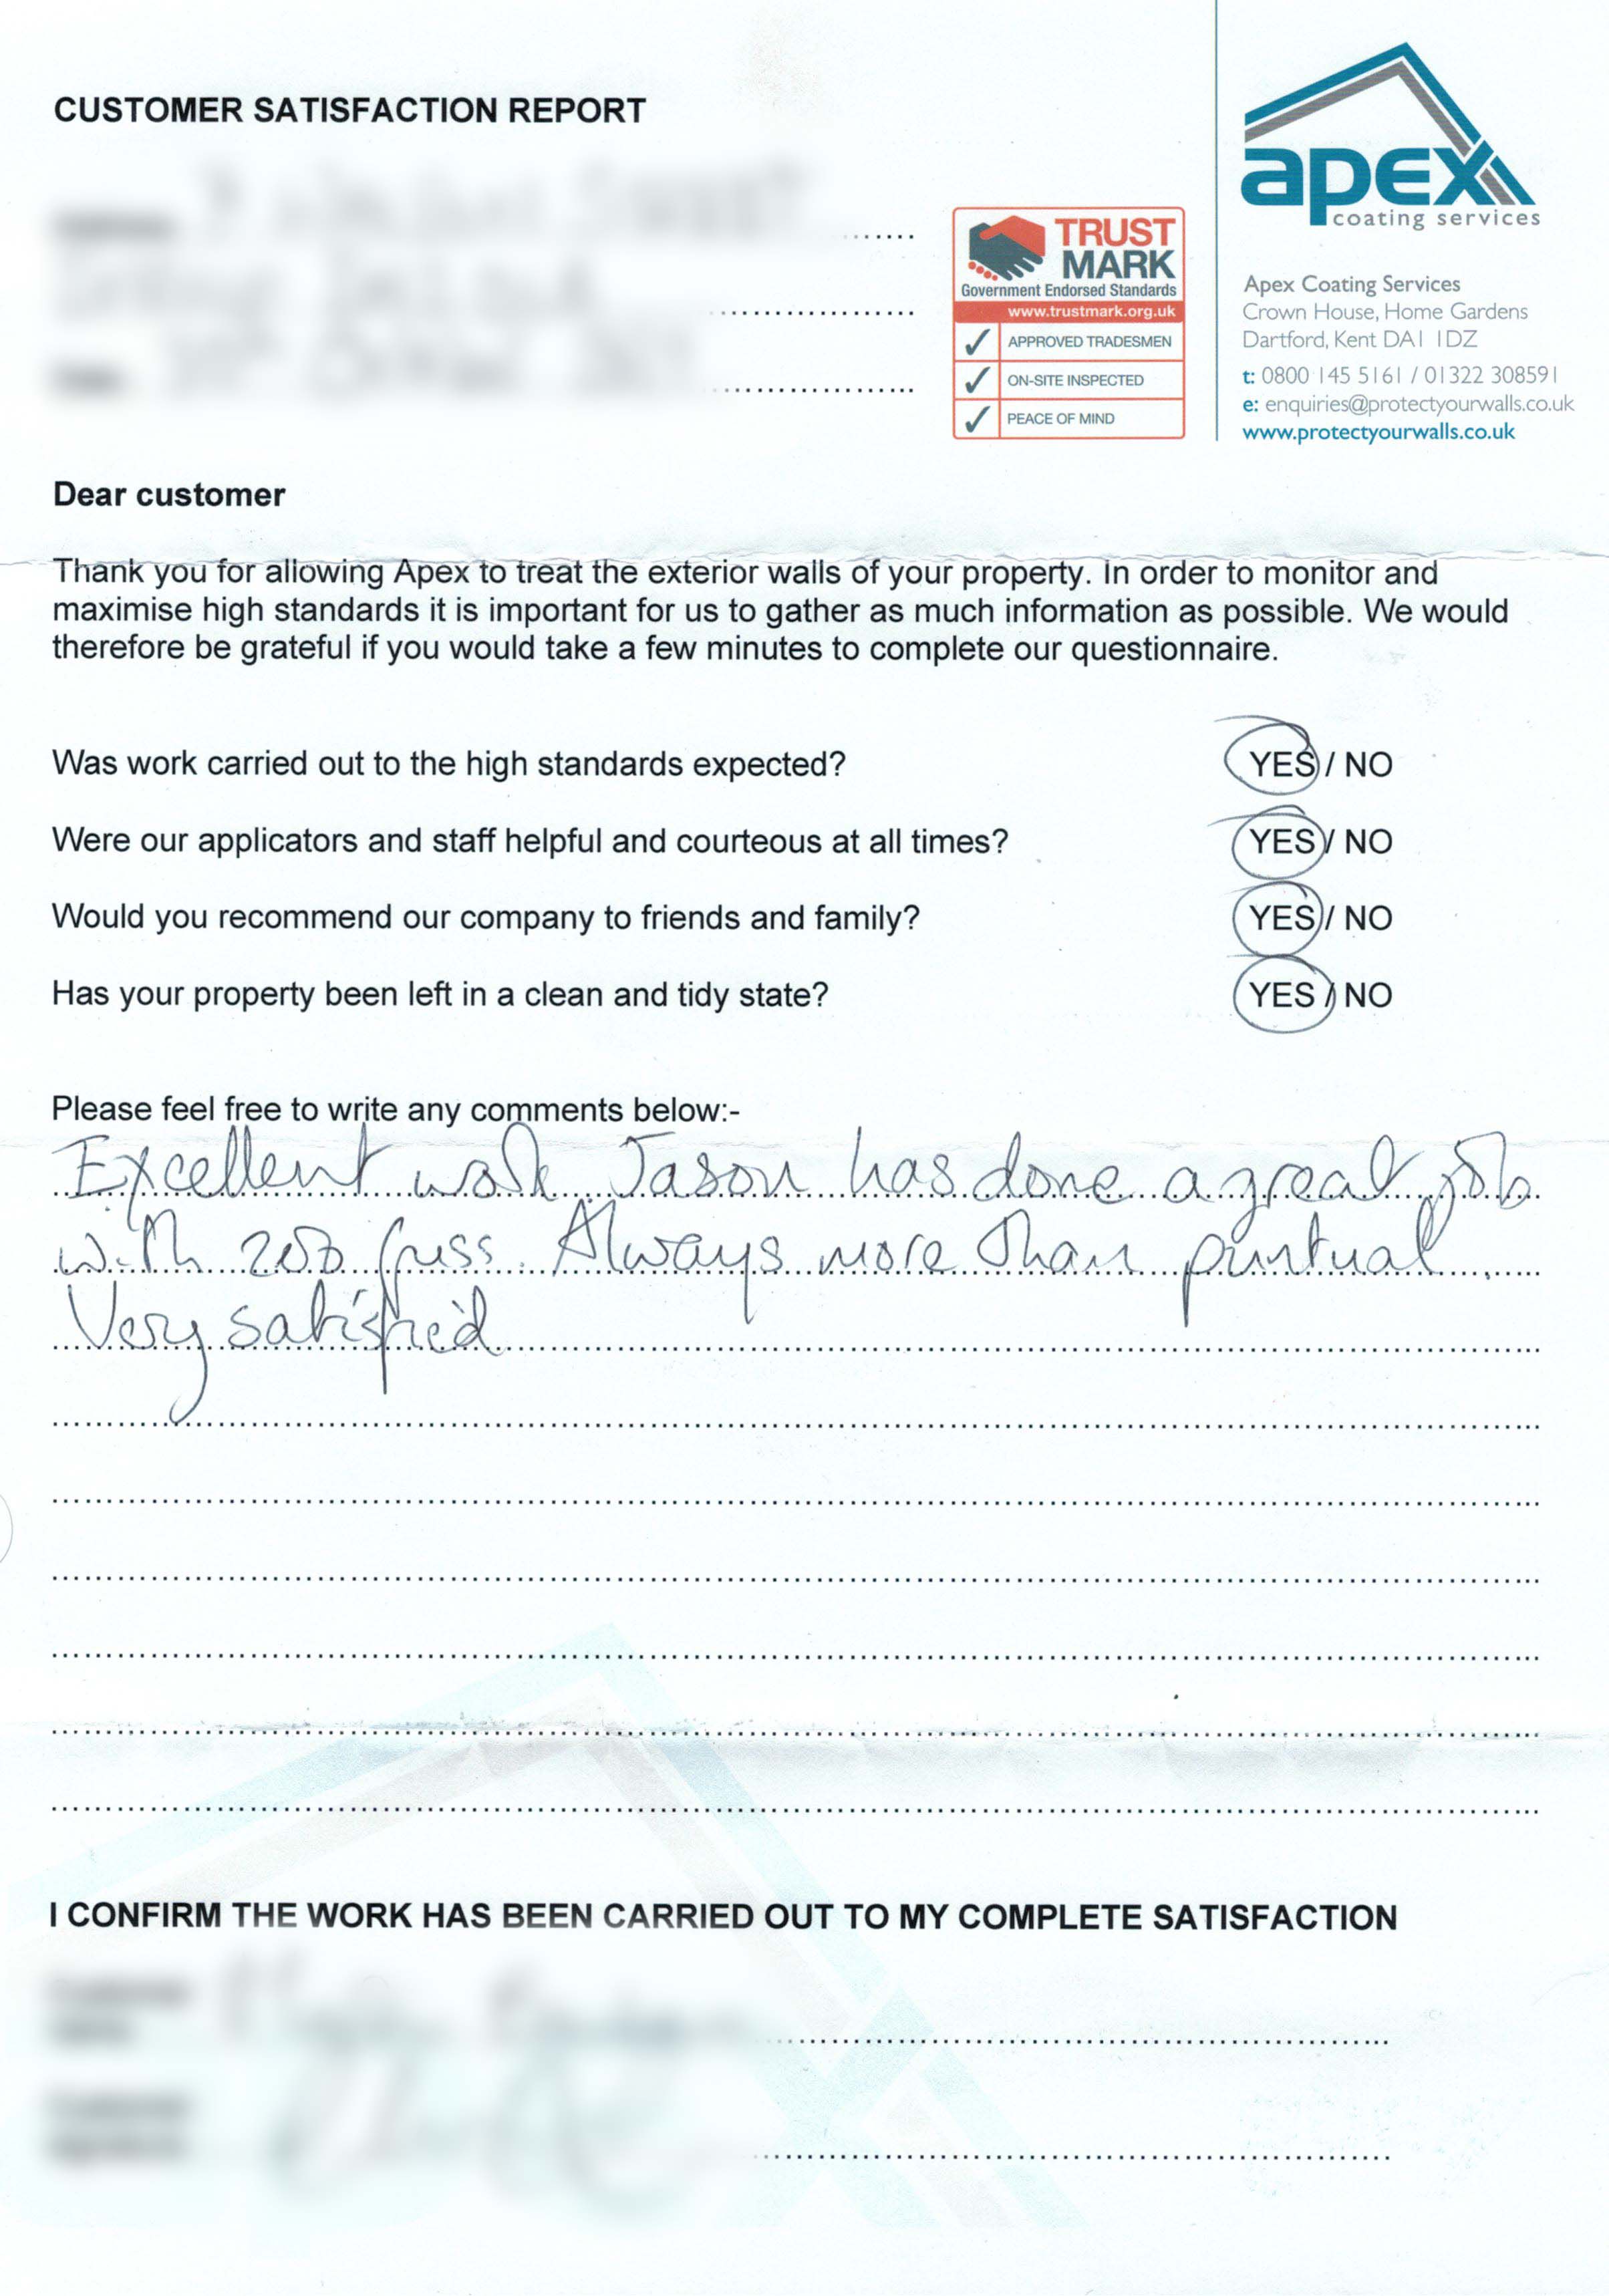 CUSTOMER SATISFACTION REPORT
apex
coating services
TRUST
MARK
Government Endorsed Standards
www.trustmark.org.uk
APPROVED TRADESMEN
ON-SITE INSPECTED
PEACE OF MIND
Apex Coating Services
Crown House, Home Gardens
Dartford, Kent DA1 1DZ
t: 0800 145 5161 / 01322 308591
e: enquiries@protectyourwalls.co.uk
www.protectyourwalls.co.uk
Dear customer
Thank you for allowing Apex to treat the exterior walls of your property. In order to monitor and
maximise high standards it is important for us to gather as much information as possible. We would
therefore be grateful if you would take a few minutes to complete our questionnaire.
Was work carried out to the high standards expected? YES / NO
Were our applicators and staff helpful and courteous at all times? YES / NO
Would you recommend our company to friends and family? YES / NO
Has your property been left in a clean and tidy state? YES / NO
Please feel free to write any comments below:-
Excellent work. Jason has done a great job
with zero fuss. Always more than puntual.
Very satisfied
I CONFIRM THE WORK HAS BEEN CARRIED OUT TO MY COMPLETE SATISFACTION